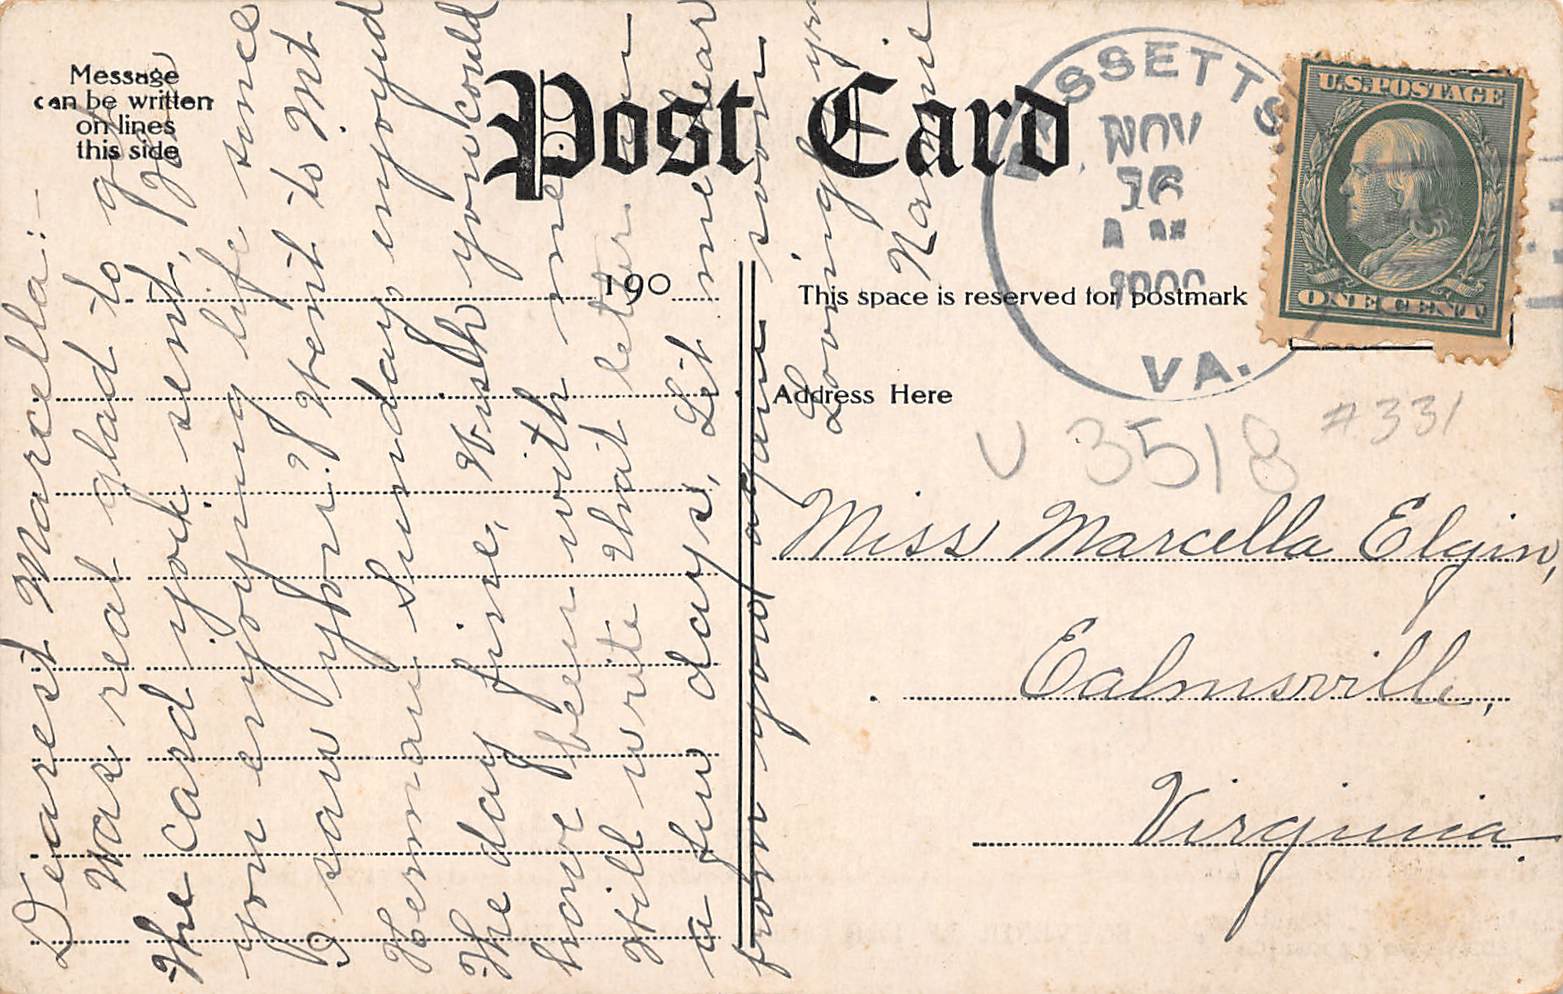 Message
can be written
on lines
this side
Post Card
190
This space is reserved for postmark
Address Here
BASSETTS,
NOV
16
A M
VA.
U.S. POSTAGE
ONE CENT
U 3518
#331
Miss Marcella Elgin,
Calmsville,
Virginia
Dearest Marcella:-
Was real glad to get
the card you sent, How
you enjoying life since
I saw you? Went to Mt
Herman Sunday enjoyed
the day fine, Wish you could
have been with me
Will write that letter in
a few days, Let me hear
from you again soon
Lovingly yrs
Nannie